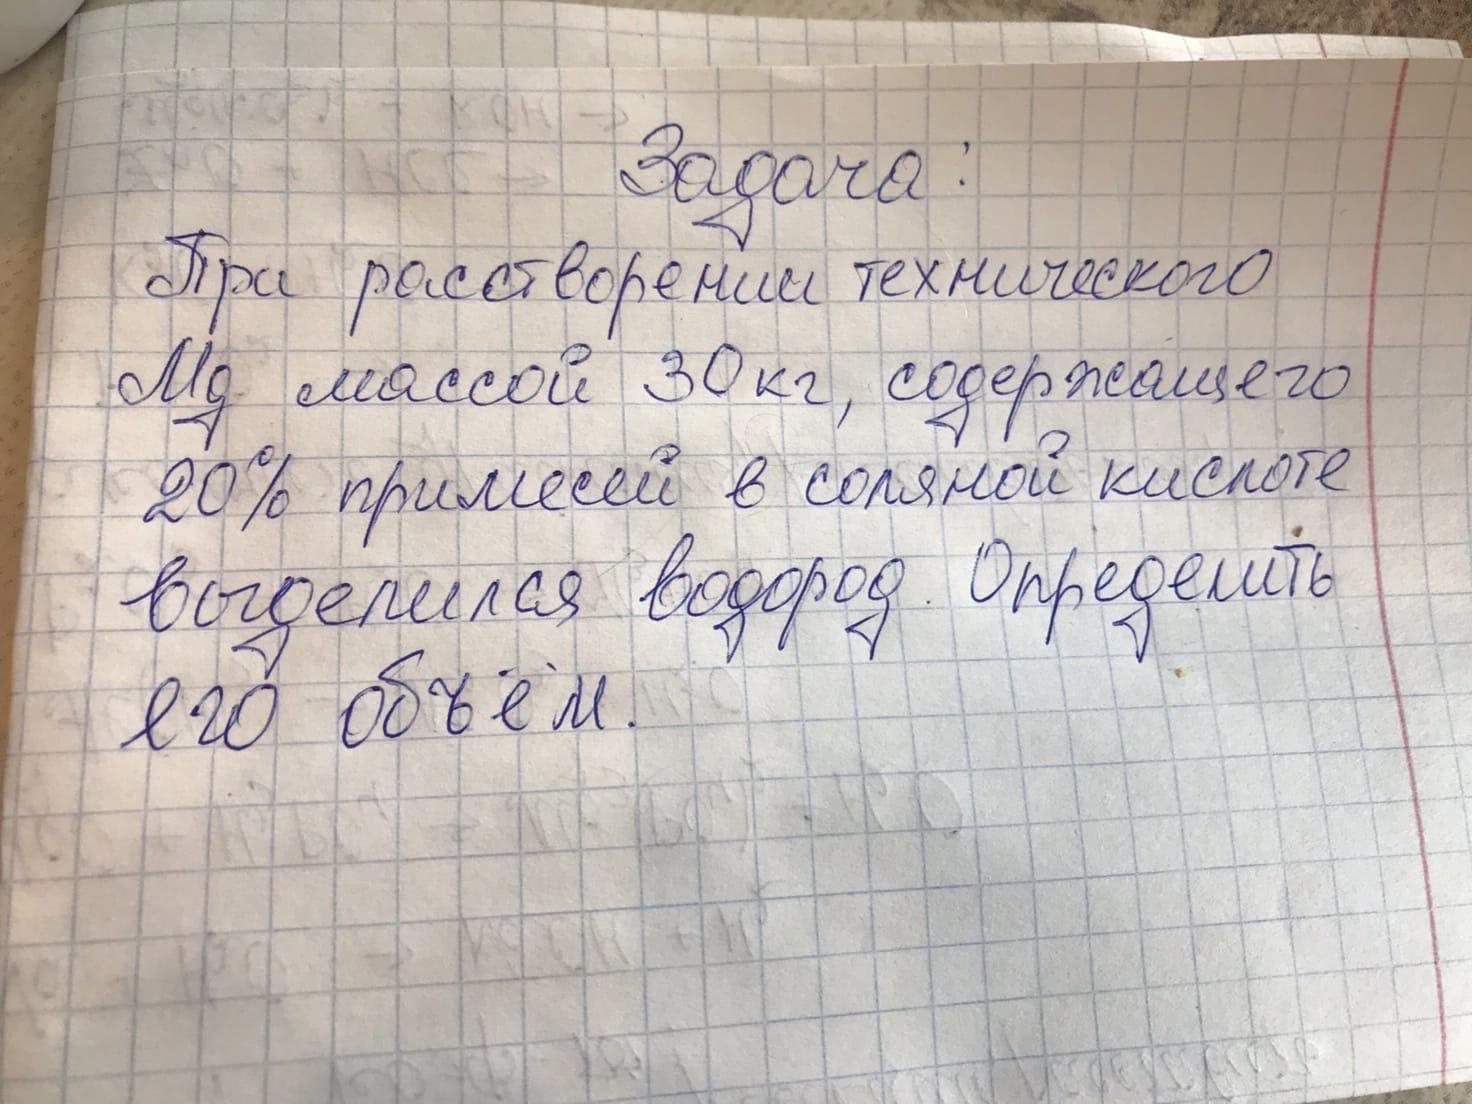 Задача:
При расстворении технического
Mg массой 30 кг, содержащего
20% примесей в соляной кислоте
выделился водород. Определить
его объём.